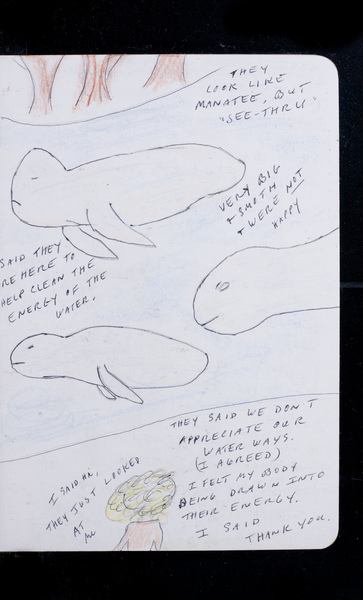 THEY
LOOK LIKE
MANATEE, BUT
"SEE-THRU"
VERY BIG
+ SMOTH
+ WERE NOT
HAPPY
SAID THEY
RE HERE TO
HELP CLEAN THE
ENERGY OF THE
WATER.
THEY SAID WE DON'T
APPRECIATE OUR
WATER WAYS.
(I AGREED)
I FELT MY BODY
BEING DRAWN INTO
THEIR ENERGY.
I SAID
THANK YOU.
I SAID HI,
THEY JUST LOOKED
AT
ME